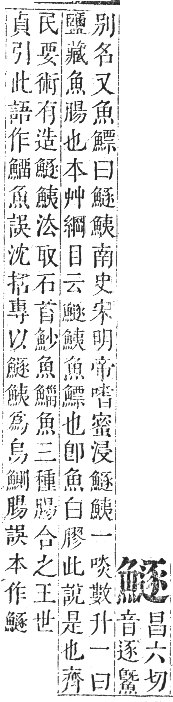 鱁
昌六切
音逐暨
別名又魚鰾曰鱁鮧南史宋明帝嗜蜜浸鱁鮧一啖數升一曰
鹽藏魚腸也本艸綱目云鱁鮧魚鰾也卽魚白膠此說是也齊
民要術有造鱁鮧法取石首魦魚鯔魚三種腸合之王世
貞引此語作鯔魚誤沈括專以鱁鮧爲烏鰂腸誤本作鱁